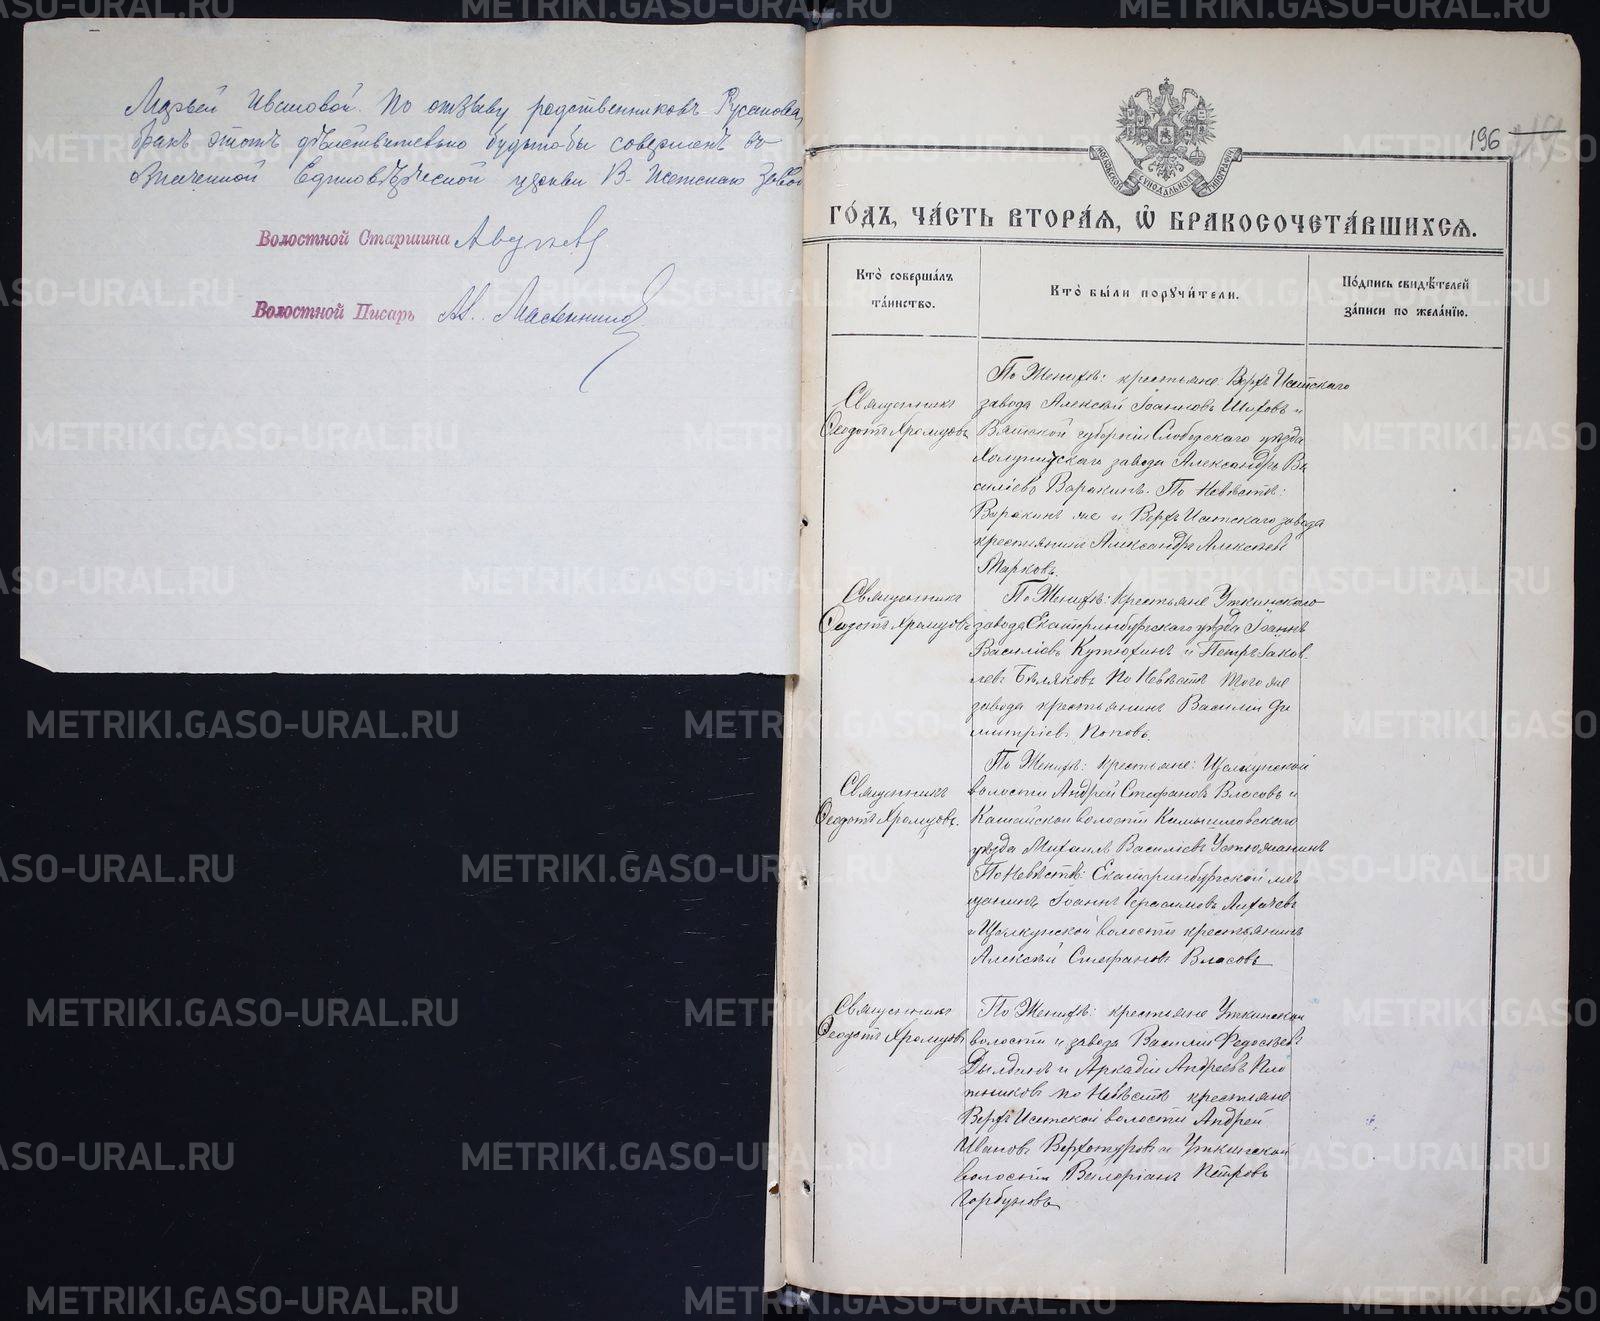 Марьей Ивановой. По отзыву родственниковъ Русанова,
бракъ этотъ действительно будтобы совершенъ во
Единоверческой церкви В-Исетскаго завода
Волостной Старшина
Волостной Писарь
196
МОСКОВСКОЙ СѴНОДАЛЬНОЙ ТИПОГРАФІИ
ГО́ДЪ, ЧА́СТЬ ВТОРА́Я, Ѽ БРАКОСОЧЕТА́ВШИХСЯ.
Кто̀ соверша́лъ
та́инство.
Кто̀ бы́ли порꙋчи́тели.
По́дпись свидѣ́телей
за́писи по жела́нїю.
Священникъ
Ѳеодотъ Хромцовъ
По Женихѣ: крестьяне: Верхъ Исетскаго
завода Алексѣй Іоанновъ Шиховъ и
Вятской губерніи Слободскаго уѣзда
Холуницскаго завода Александръ Ва
силіевъ Варакинъ. По Невѣстѣ:
Варакинъ же и Верхъ Исетскаго завода
крестьянинъ Александръ Алексѣевъ
Марковъ.
Священникъ
Ѳеодотъ Хромцовъ
По Женихѣ: Крестьяне Уткинскаго
завода Екатеринбургскаго уѣзда Іоаннъ
Василіевъ Кутюхинъ и Петръ Іаков
левъ Бѣляковъ По Невѣстѣ того же
завода крестьянинъ Василій Ди
митріевъ Поповъ.
Священникъ
Ѳеодотъ Хромцовъ.
По Женихѣ: крестьяне: Щелкунской
волости Андрей Стефановъ Власовъ и
волости Камышловскаго
уѣзда Михаилъ Василіевъ Устюжанинъ
По Невѣстѣ: Екатеринбургской мѣ
щанинъ Іоаннъ Герасимовъ Лихачевъ
и Щелкунской волости крестьянинъ
Алексѣй Стефановъ Власовъ
Священникъ
Ѳеодотъ Хромцовъ
По Женихѣ: крестьяне Уткинской
волости и завода Василій Федосѣевъ
Дылдинъ и Аркадій Андреевъ Пло
тниковъ по Невѣстѣ крестьяне
Верхъ Исетской волости Андрей
Ивановъ Верхотуровъ и Уткинской
волости Валеріанъ Петровъ
Горбуновъ
METRIKI.GASO-URAL.RU